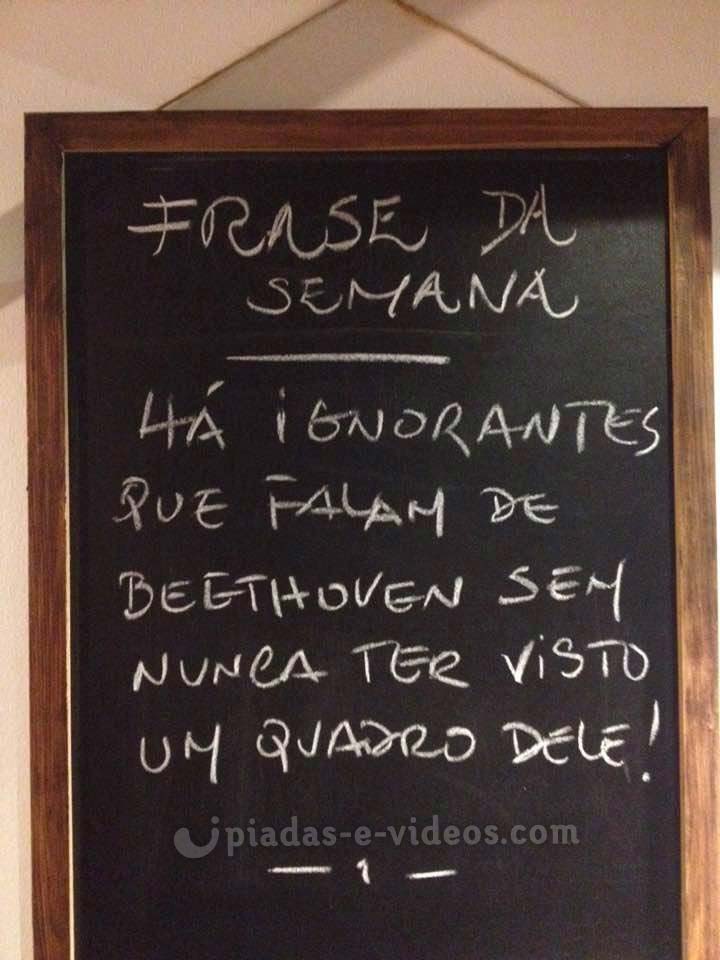 FRASE DA
SEMANA
HÁ IGNORANTES
QUE FALAM DE
BEETHOVEN SEM
NUNCA TER VISTO
UM QUADRO DELE!
piadas-e-videos.com